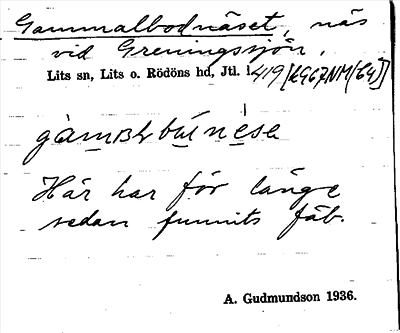 Gammalbodnäset, näs
vid Greningssjön.
Lits sn, Lits o. Rödöns hd, Jtl.
Här har för länge
sedan funnits fäb.
A. Gudmundson 1936.